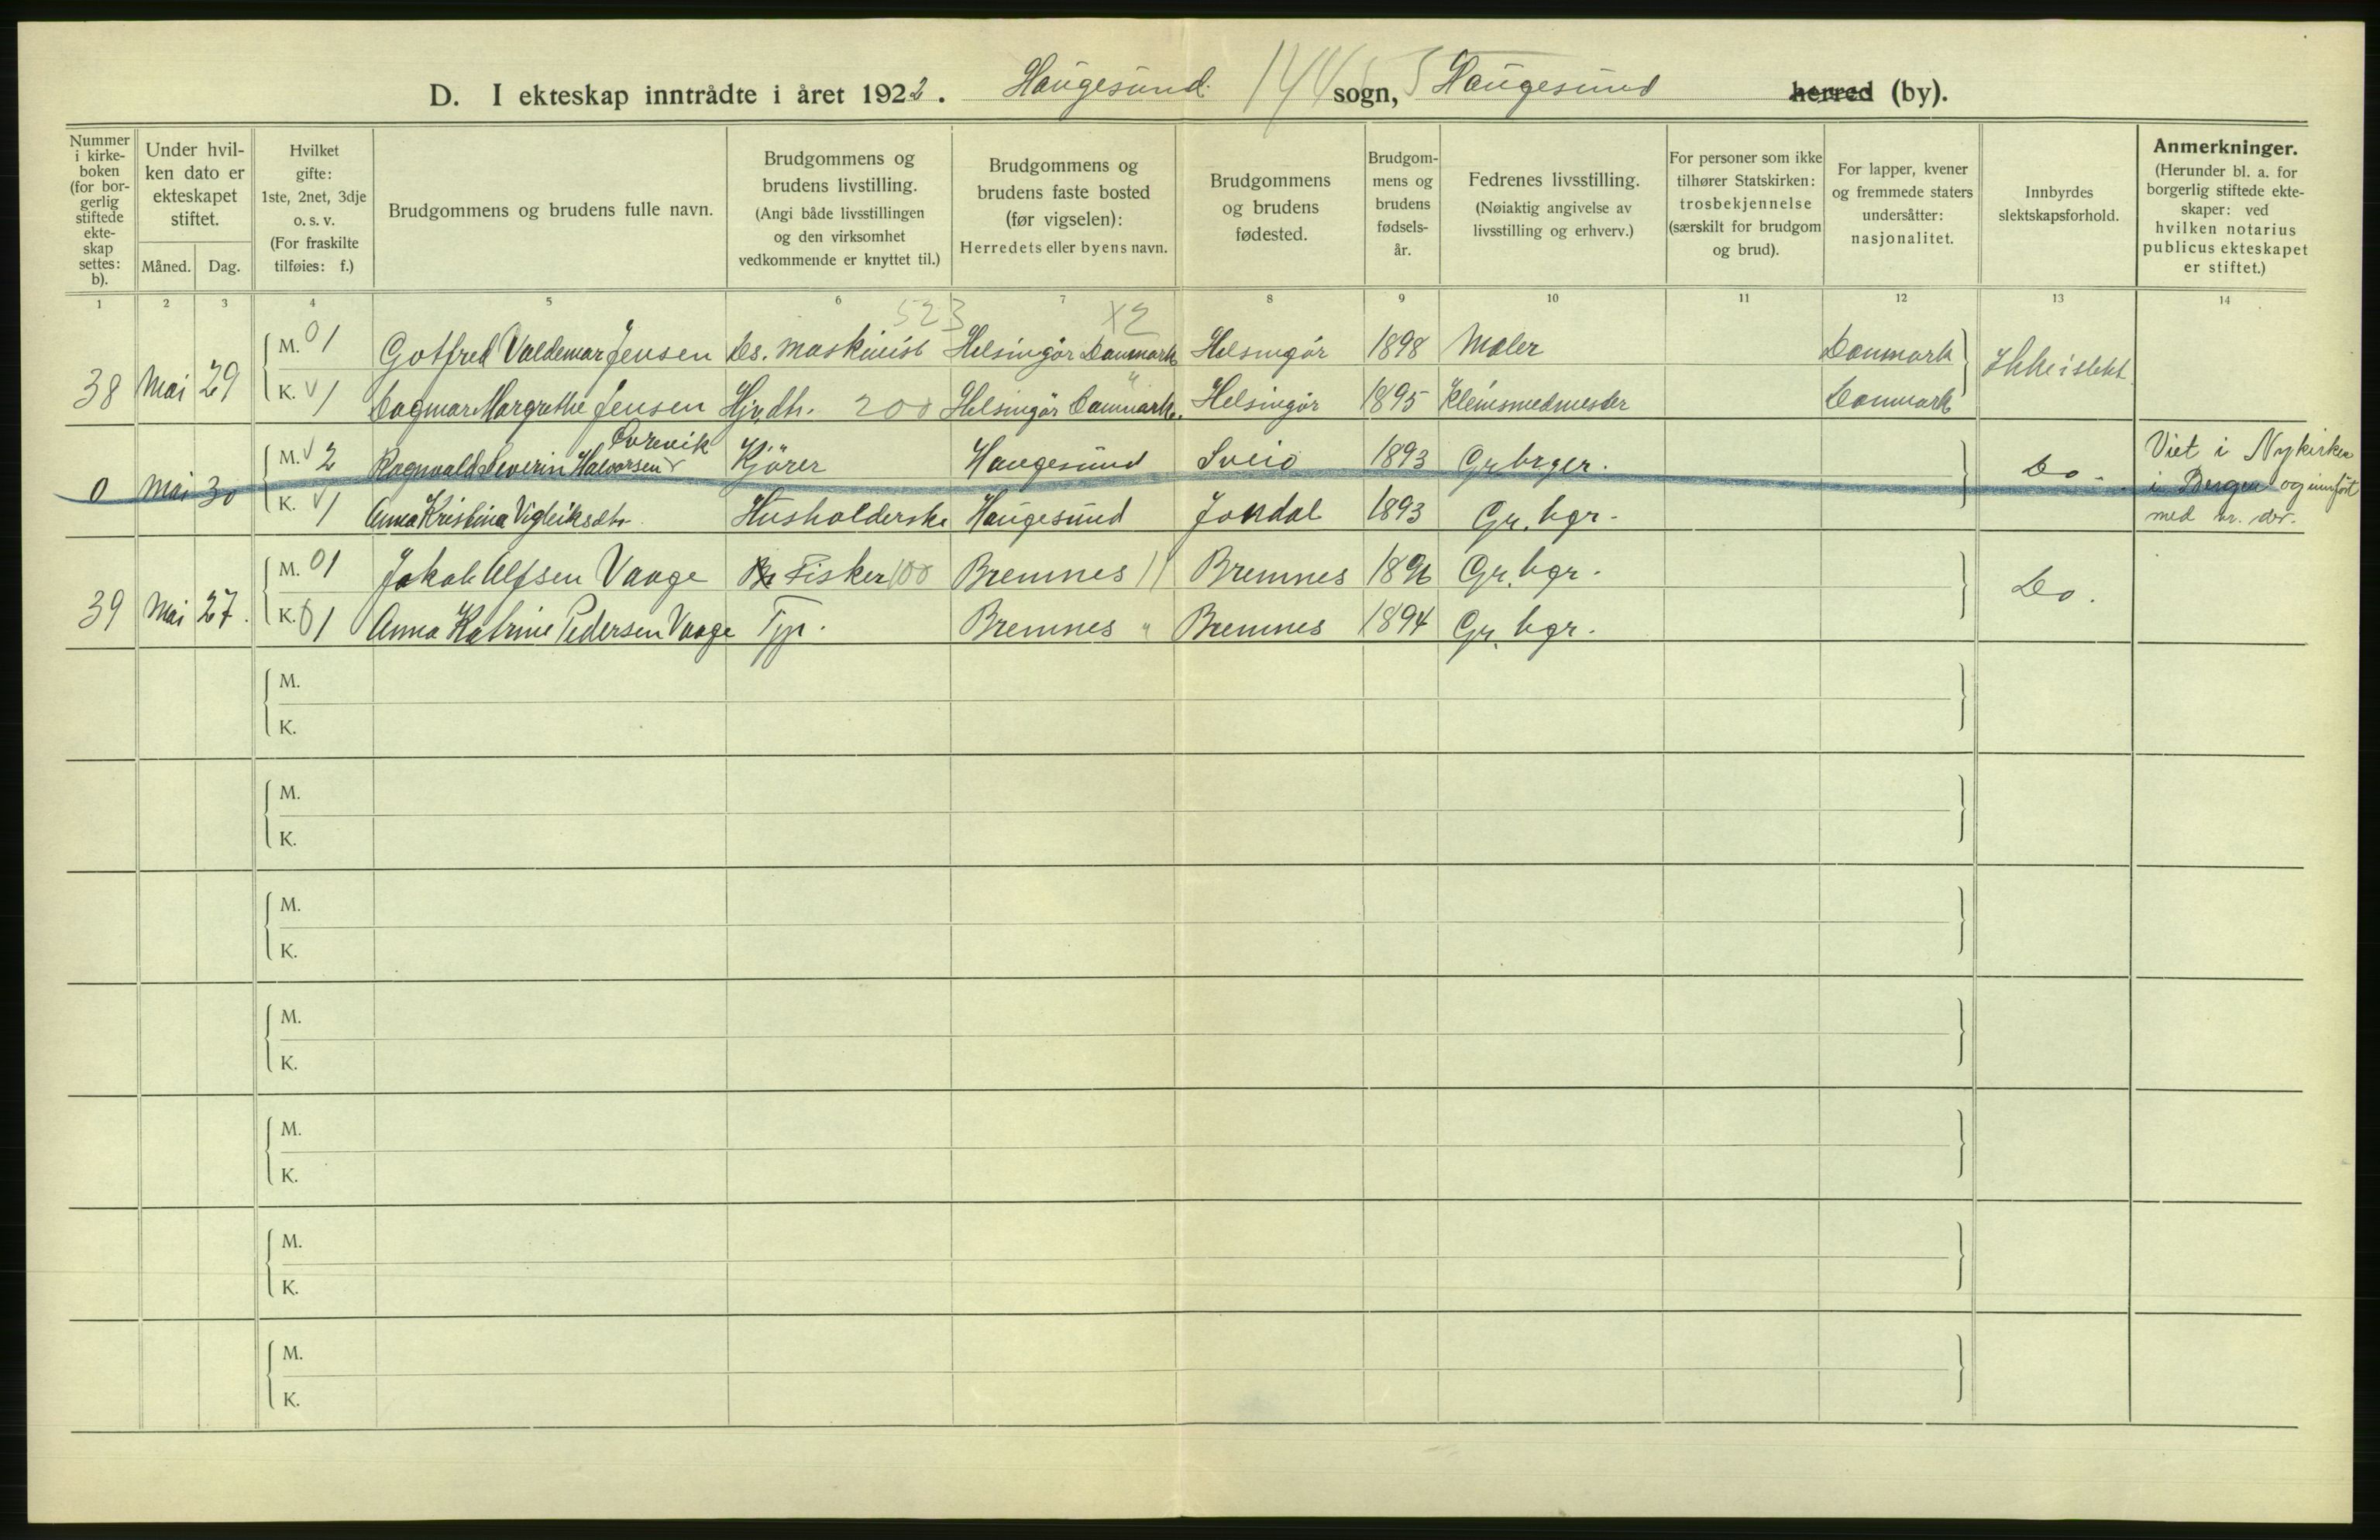 D. I ekteskap inntrådte i året 1922. Haugesund. 144 sogn, 5 Haugesund herred (by).
Nummer i kirke-boken (for bor-gerlig stiftede ekte-skap settes: b).
Under hvil-ken dato er ekteskapet stiftet.
Måned. Dag.
Hvilket gifte: 1ste, 2net, 3dje o. s. v. (For fraskilte tilføies: f.)
Brudgommens og brudens fulle navn.
Brudgommens og brudens livstilling. (Angi både livsstillingen og den virksomhet vedkommende er knyttet til.)
Brudgommens og brudens faste bosted (før vigselen): Herredets eller byens navn.
Brudgommens og brudens fødested.
Brudgom-mens og brudens fødsels-år.
Fedrenes livsstilling. (Nøiaktig angivelse av livsstilling og erhverv.)
For personer som ikke tilhører Statskirken: trosbekjennelse (særskilt for brudgom og brud).
For lapper, kvener og fremmede staters undersåtter: nasjonalitet.
Innbyrdes slektskapsforhold.
Anmerkninger. (Herunder bl. a. for borgerlig stiftede ekte-skaper: ved hvilken notarius publicus ekteskapet er stiftet.)
1 2 3 4 5 6 7 8 9 10 11 12 13 14
523 X2
M. 01 Gotfred Valdemar Jensen Des. maskinist Helsingör Danmark Helsingör 1898 Maler Danmark
38 Mai 29 Ikke i slekt.
K. √1 Dagmar Margrethe Jensen Hjv. dtr. 200 Helsingör Danmark. " Helsingör 1895 Kleinsmedmester Danmark
Evrevik
M. √2 Ragnvald Severin Halvorsen Kjörer Haugesund Sveio 1893 Grbrger. Viet i Nykirken
0 Mai 30 Do i Bergen og innfört
K. √1 Anna Kristina Vigleiksdtr. Husholderske Haugesund Jondal 1893 Gr. bgr. med nr. der.
M. 01 Jakob Alfsen Vaage Fisker 100 Bremnes 11 Bremnes 1896 Gr. bgr.
39 Mai 27. Do.
K. 01 Anna Katrine Pedersen Vaage Tjp. Bremnes " Bremnes 1894 Gr. bgr.
M.
K.
M.
K.
M.
K.
M.
K.
M.
K.
M.
K.
M.
K.